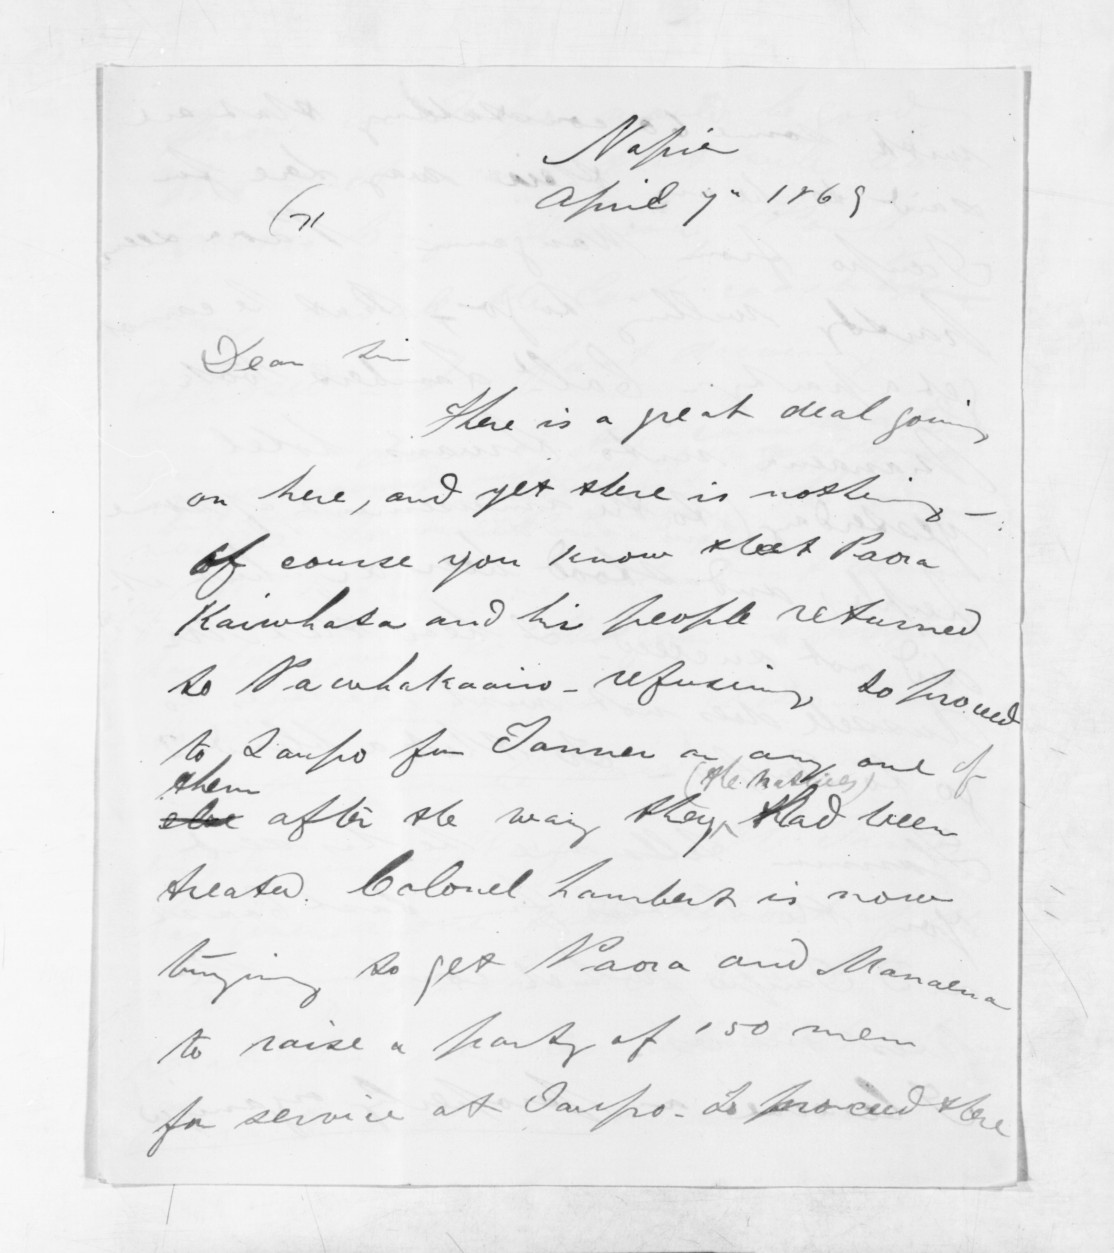 Napier
April 7th 1869
(71
Dear Sir
There is a great deal going
on here, and yet there is nothing -
of course you know that Paora
Kaiwhata and his people returned
to Pawhakaairo - refusing to proceed
to Taupo for Tanner or any one of
them
(the Natives)
else after the way they had been
treated. Colonel Lambert is now
trying to get Paora and Manaena
to raise a party of 150 men
for service at Taupo - to proceed there